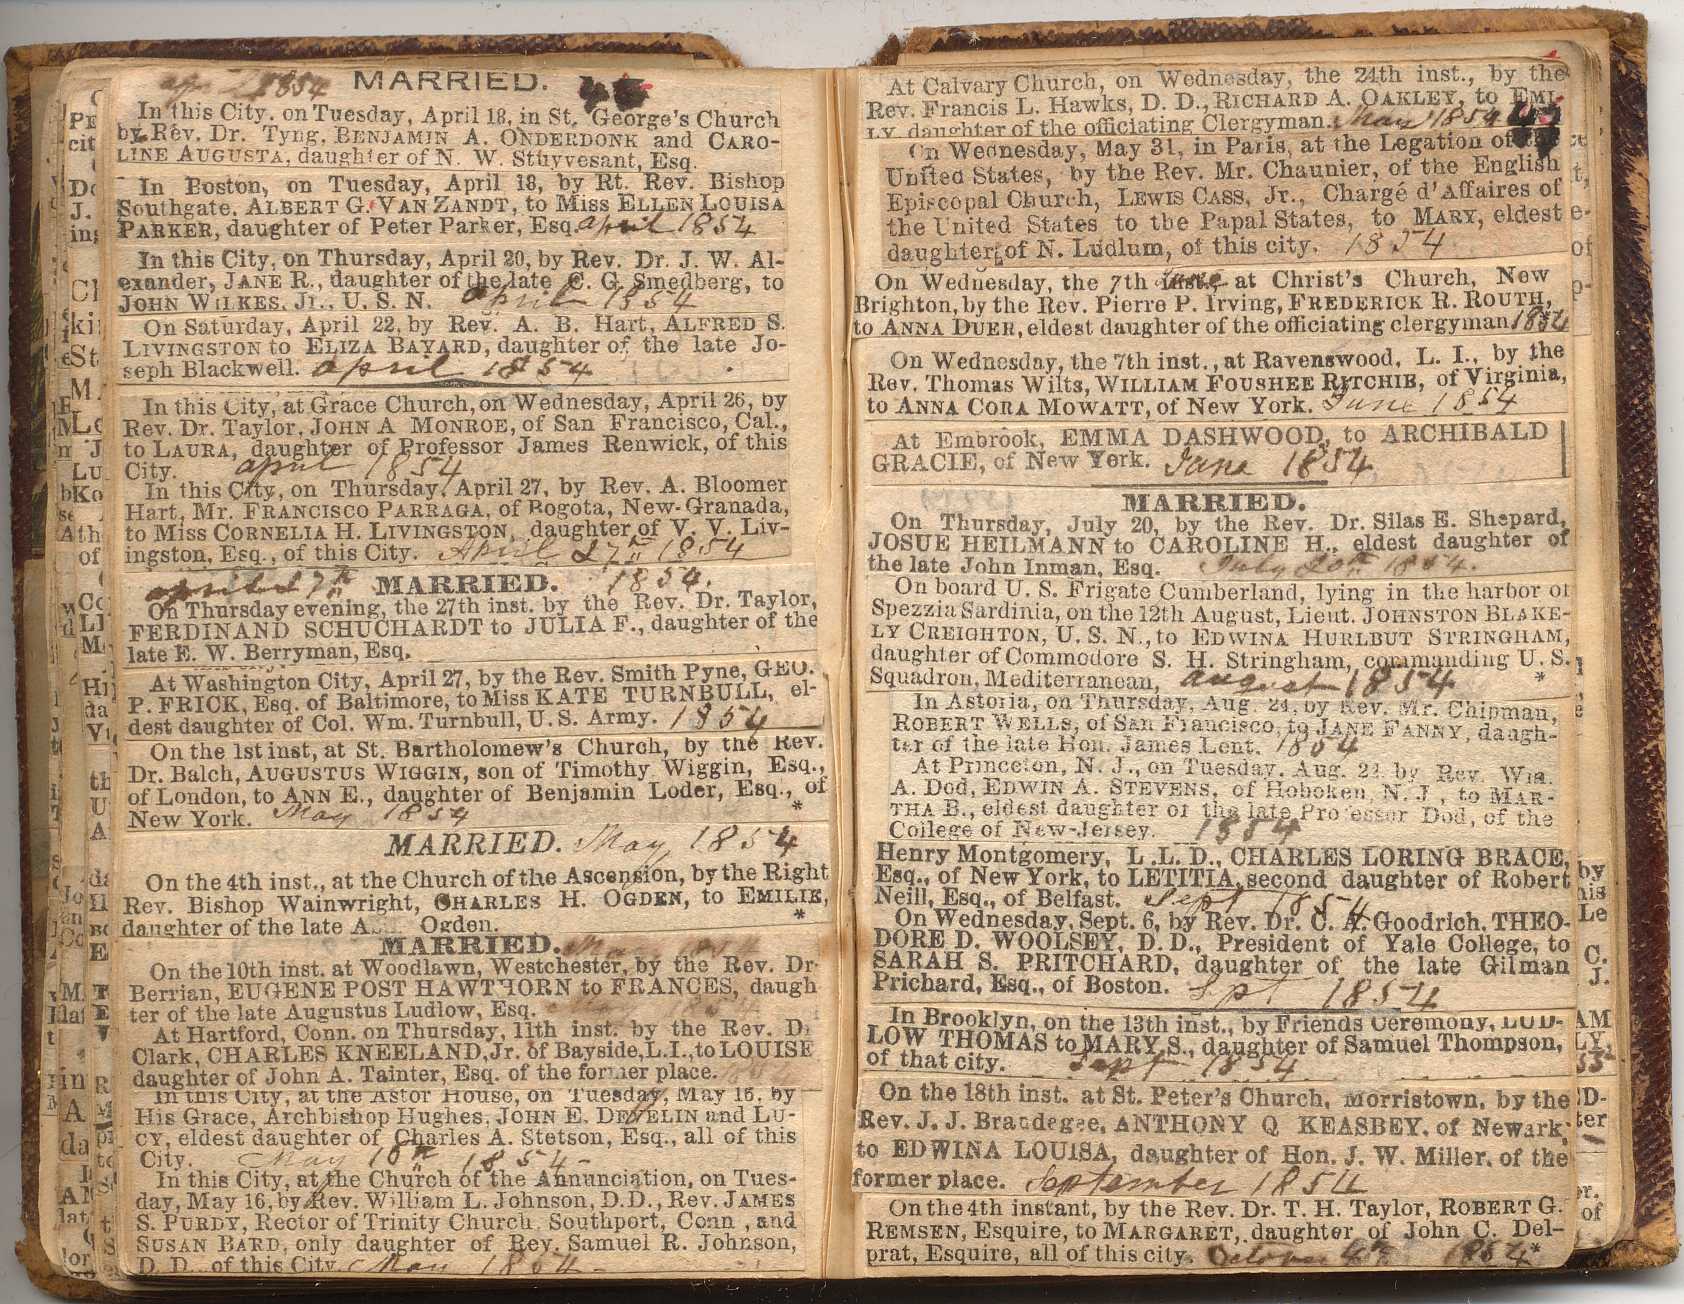 april 1854 MARRIED. 45
In this City, on Tuesday, April 18, in St. George's Church
by Rev. Dr. Tyng, BENJAMIN A. ONDERDONK and CARO-
LINE AUGUSTA, daughter of N. W. Stuyvesant, Esq.
In Boston, on Tuesday, April 18, by Rt. Rev. Bishop
Southgate, ALBERT G. VAN ZANDT, to Miss ELLEN LOUISA
PARKER, daughter of Peter Parker, Esq. april 1854
In this City, on Thursday, April 20, by Rev. Dr. J. W. Al-
exander, JANE R., daughter of the late C. G. Smedberg, to
JOHN WILKES, Jr., U. S. N. april 1854
On Saturday, April 22, by Rev. A. B. Hart, ALFRED S.
LIVINGSTON to ELIZA BAYARD, daughter of the late Jo-
seph Blackwell. april 1854
In this City, at Grace Church, on Wednesday, April 26, by
Rev. Dr. Taylor, JOHN A MONROE, of San Francisco, Cal.,
to LAURA, daughter of Professor James Renwick, of this
City. april 1854
In this City, on Thursday, April 27, by Rev. A. Bloomer
Hart, Mr. FRANCISCO PARRAGA, of Bogota, New-Granada,
to Miss CORNELIA H. LIVINGSTON, daughter of V. V. Liv-
ingston, Esq., of this City. April 27th 1854
april 27th MARRIED. 1854.
On Thursday evening, the 27th inst. by the Rev. Dr. Taylor,
FERDINAND SCHUCHARDT to JULIA F., daughter of the
late E. W. Berryman, Esq.
At Washington City, April 27, by the Rev. Smith Pyne, GEO.
P. FRICK, Esq. of Baltimore, to Miss KATE TURNBULL, el-
dest daughter of Col. Wm. Turnbull, U. S. Army. 1854
On the 1st inst, at St. Bartholomew's Church, by the Rev.
Dr. Balch, AUGUSTUS WIGGIN, son of Timothy Wiggin, Esq.,
of London, to ANN E., daughter of Benjamin Loder, Esq., of
New York. May 1854 *
MARRIED. May 1854
On the 4th inst., at the Church of the Ascension, by the Right
Rev. Bishop Wainwright, CHARLES H. OGDEN, to EMILIE,
daughter of the late Ogden. *
MARRIED. May 1854
On the 10th inst. at Woodlawn, Westchester, by the Rev. Dr
Berrian, EUGENE POST HAWTHORN to FRANCES, daugh
ter of the late Augustus Ludlow, Esq. May 1854
At Hartford, Conn. on Thursday, 11th inst. by the Rev. D
Clark, CHARLES KNEELAND, Jr. of Bayside, L.I., to LOUISE
daughter of John A. Tainter, Esq. of the former place. 1854
In this City, at the Astor House, on Tuesday, May 16, by
His Grace, Archbishop Hughes, JOHN E. DEVELIN and LU-
CY, eldest daughter of Charles A. Stetson, Esq., all of this
City. May 16th 1854
In this City, at the Church of the Annunciation, on Tues-
day, May 16, by Rev. William L. Johnson, D.D., Rev. JAMES
S. PURDY, Rector of Trinity Church, Southport, Conn, and
SUSAN BARD, only daughter of Rev. Samuel R. Johnson,
D. D., of this City. May 1854
At Calvary Church, on Wednesday, the 24th inst., by the
Rev. Francis L. Hawks, D. D., RICHARD A. OAKLEY, to EMI-
LY, daughter of the officiating Clergyman. May 1854
On Wednesday, May 31, in Paris, at the Legation of the
United States, by the Rev. Mr. Chaunier, of the English
Episcopal Church, LEWIS CASS, Jr., Chargé d'Affaires of
the United States to the Papal States, to MARY, eldest
daughter of N. Ludlum, of this city. 1854
On Wednesday, the 7th June at Christ's Church, New
Brighton, by the Rev. Pierre P. Irving, FREDERICK R. ROUTH,
to ANNA DUER, eldest daughter of the officiating clergyman 1854
On Wednesday, the 7th inst., at Ravenswood, L. I., by the
Rev. Thomas Wilts, WILLIAM FOUSHEE RITCHIE, of Virginia,
to ANNA CORA MOWATT, of New York. June 1854
At Embrook, EMMA DASHWOOD, to ARCHIBALD
GRACIE, of New York. June 1854
MARRIED.
On Thursday, July 20, by the Rev. Dr. Silas E. Shepard,
JOSUE HEILMANN to CAROLINE H., eldest daughter of
the late John Inman, Esq. July 20th 1854.
On board U. S. Frigate Cumberland, lying in the harbor of
Spezzia Sardinia, on the 12th August, Lieut. JOHNSTON BLAKE-
LY CREIGHTON, U. S. N., to EDWINA HURLBUT STRINGHAM,
daughter of Commodore S. H. Stringham, commanding U. S.
Squadron, Mediterranean, august 1854 *
In Astoria, on Thursday, Aug. 24, by Rev. Mr. Chipman,
ROBERT WELLS, of San Francisco, to JANE FANNY, daugh-
ter of the late Hon. James Lent. 1854
At Princeton, N. J., on Tuesday, Aug. 22 by Rev. Wm.
A. Dod, EDWIN A. STEVENS, of Hoboken, N. J., to MAR-
THA B., eldest daughter of the late Professor Dod, of the
College of New-Jersey. 1854
Henry Montgomery, L .L. D., CHARLES LORING BRACE,
Esq., of New York, to LETITIA, second daughter of Robert
Neill, Esq., of Belfast. Sept 1854
On Wednesday, Sept. 6, by Rev. Dr. C. A. Goodrich, THEO-
DORE D. WOOLSEY, D. D., President of Yale College, to
SARAH S. PRITCHARD, daughter of the late Gilman
Prichard, Esq., of Boston. Spt 1854
In Brooklyn, on the 13th inst., by Friends Ceremony, LUD-
LOW THOMAS to MARY S., daughter of Samuel Thompson,
of that city. Sept 1854
On the 18th inst. at St. Peter's Church, Morristown, by the
Rev. J. J. Brandegee, ANTHONY Q KEASBEY, of Newark,
to EDWINA LOUISA, daughter of Hon. J. W. Miller, of the
former place. September 1854
On the 4th instant, by the Rev. Dr. T. H. Taylor, ROBERT G.
REMSEN, Esquire, to MARGARET, daughter of John C. Del-
prat, Esquire, all of this city. October 4th 1854 *